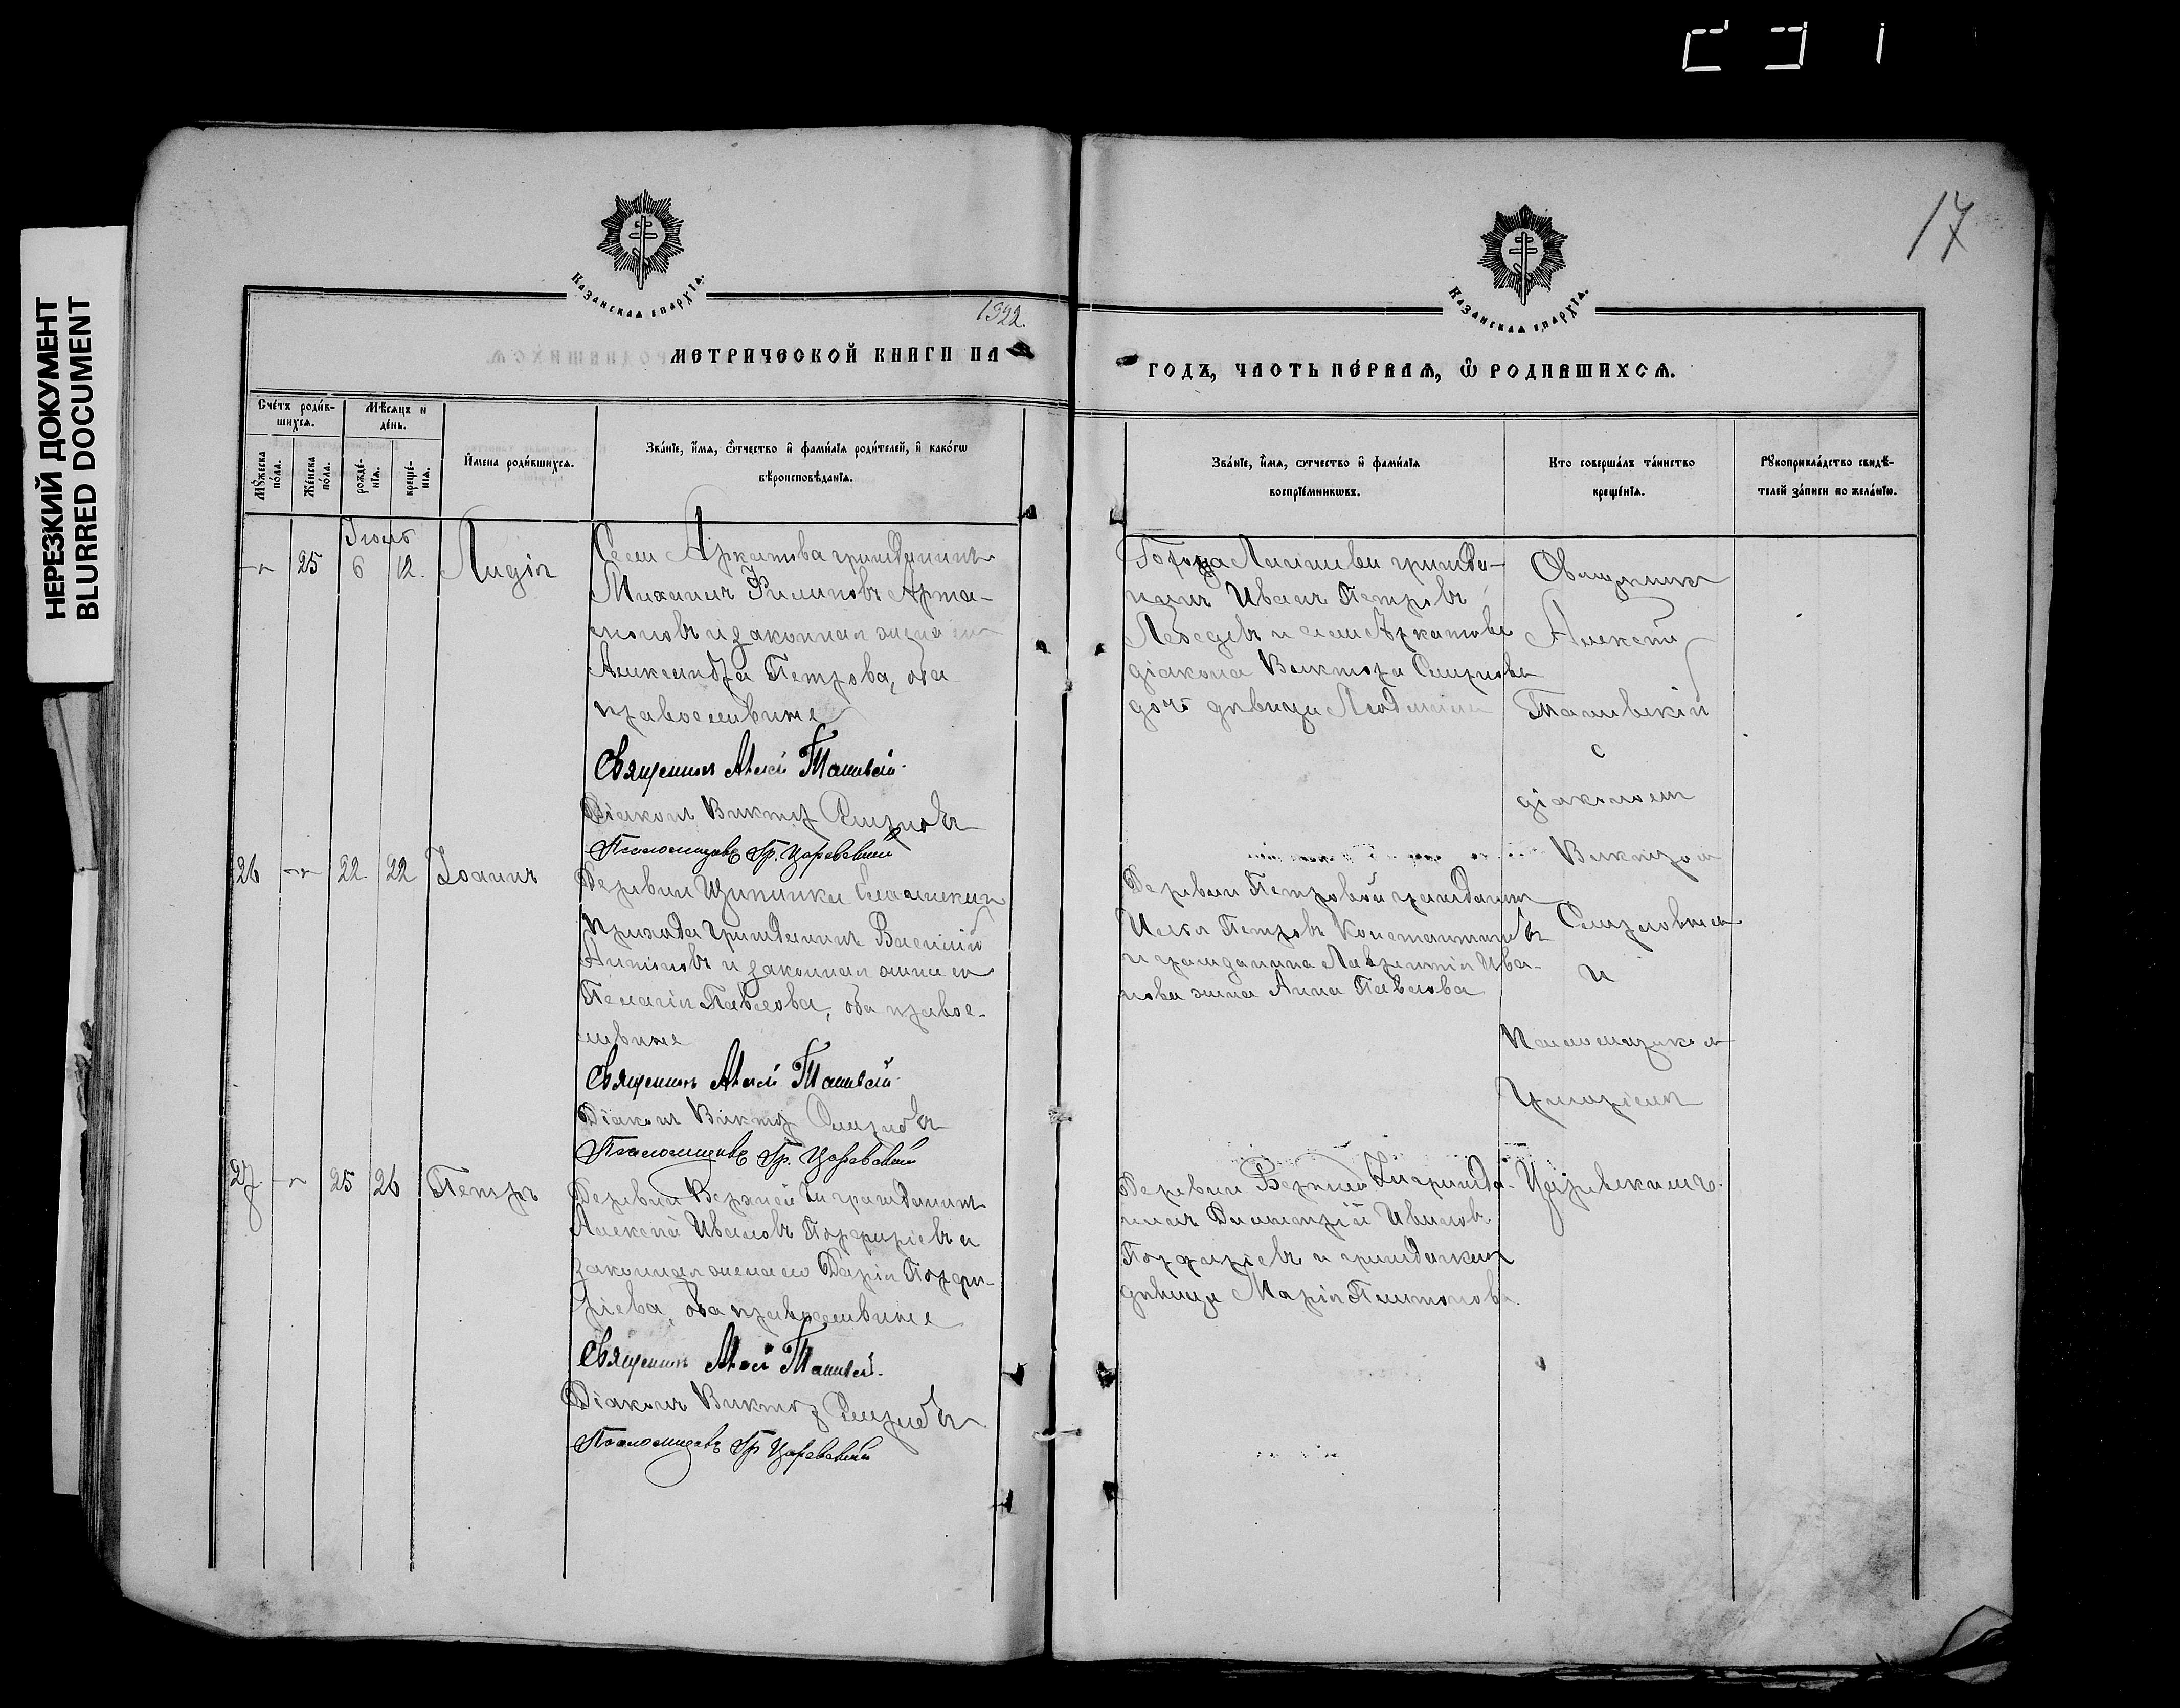 НЕРЕЗКИЙ ДОКУМЕНТ
BLURRED DOCUMENT
17
Казанская епархїа.
Казанская епархїа.
1922.
МЕТРИЧЕСКОЙ КНИГИ НА
ГОДЪ, ЧАСТЬ ПЕ́РВАЯ, Ѿ РОДИВШИХСЯ.
Сче́тъ роди́в-
шихся.
Мѣсяцъ и
де́нь.
Мꙋжеска
по́ла.
Же́нска
по́ла.
рожде́-
нїя.
креще́-
нїя.
И́мена роди́вшихся.
Зва́нїе, и́мя, ѻ́тчество и҆ фами́лїя роди́телей, и҆ како́гѡ
вѣроисповѣ́данїя.
Зва́нїе, и́мя, ѻ́тчество и҆ фами́лїя
воспрїе́мникѡвъ.
Кто соверша́лъ та́инство
креще́нїя.
Рꙋкоприкла́дство свидѣ́-
телей за́писи по жела́нїю.
Іюль
25 6 12. Лидія
Села Аркатова гражданинъ
Михаилъ Филиповъ Арта-
моновъ и законная жена его
Александра Петрова, оба
православные
Священникъ Алексій Талиевскій
Діаконъ Викторъ Смирновъ
Псаломщикъ Гр. Царевскій
Города Лаишева гражда-
нинъ Иванъ Петровъ
Лебедевъ и села Аркатова
діакона Виктора Смирнова
дочь дѣвица Людмила
Священникъ
Алексій
Талиевскій
с
діакономъ
Викторомъ
Смирновымъ
и
Псаломщикомъ
Григоріемъ
Царевскимъ.
26 22. 22 Іоаннъ
Деревни
прихода гражданинъ Василій
Антоновъ и законная жена его
Пелагія Павлова, оба право-
славные
Священникъ Алексій Талиевскій
Діаконъ Викторъ Смирновъ
Псаломщикъ Гр. Царевскій
Деревни Петровой гражданинъ
Илья Петровъ Константиновъ
и гражданина Лаврентія Ива-
нова жена Анна Павлова
27. 25 26 Петръ
Деревни Верхней гражданинъ
Алексѣй Ивановъ Порфирьевъ и
законная жена его Дарія Порфи-
рьева, оба православные
Священникъ Алексій Талиевскій.
Діаконъ Викторъ Смирновъ
Псаломщикъ Гр. Царевскій
Деревни Верхней гражда-
нинъ Димитрій Ивановъ
Порфирьевъ и гражданка
дѣвица Марія Платонова.